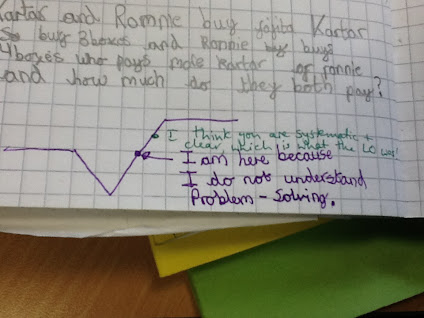 Kartar and Ronnie buy fajita Kartar
buy 3boxes and Ronnie buys
4boxes who pays more kartar or ronnie
and how much do they both pay?
I think you are systematic +
clear which is what the LO was!
I am here because
I do not understand
Problem-Solving.